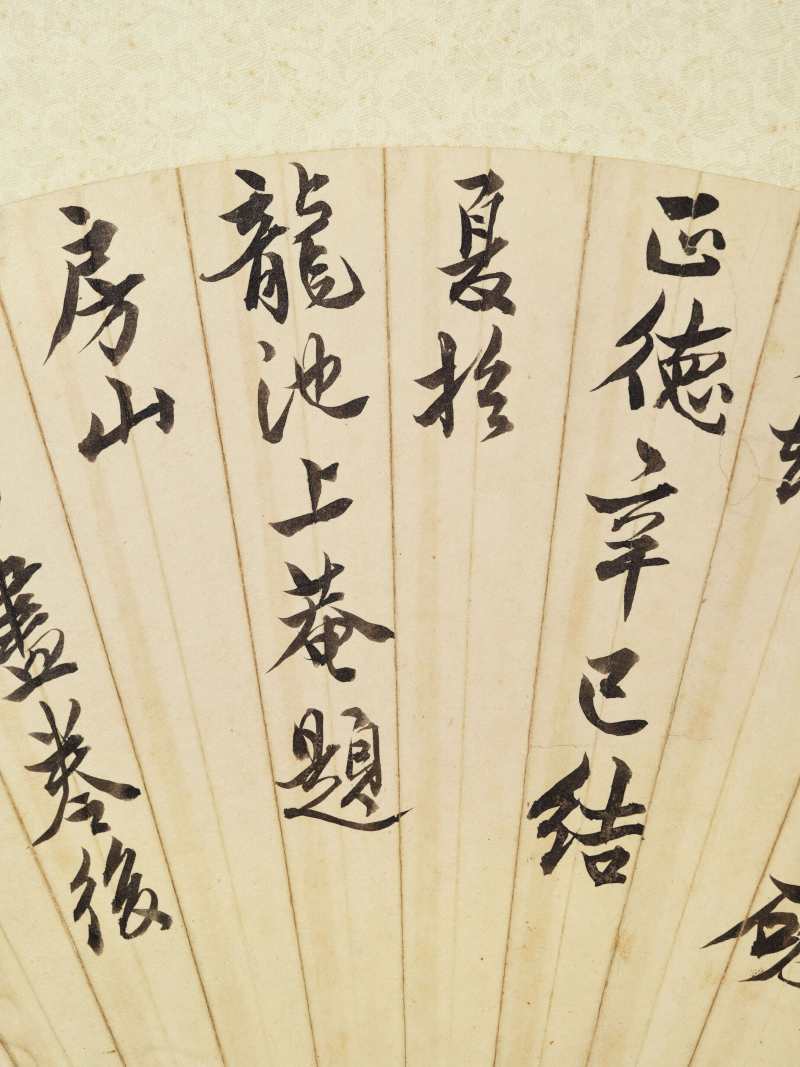 正德辛巳結
夏於
龍池上菴題
房山
畫卷後